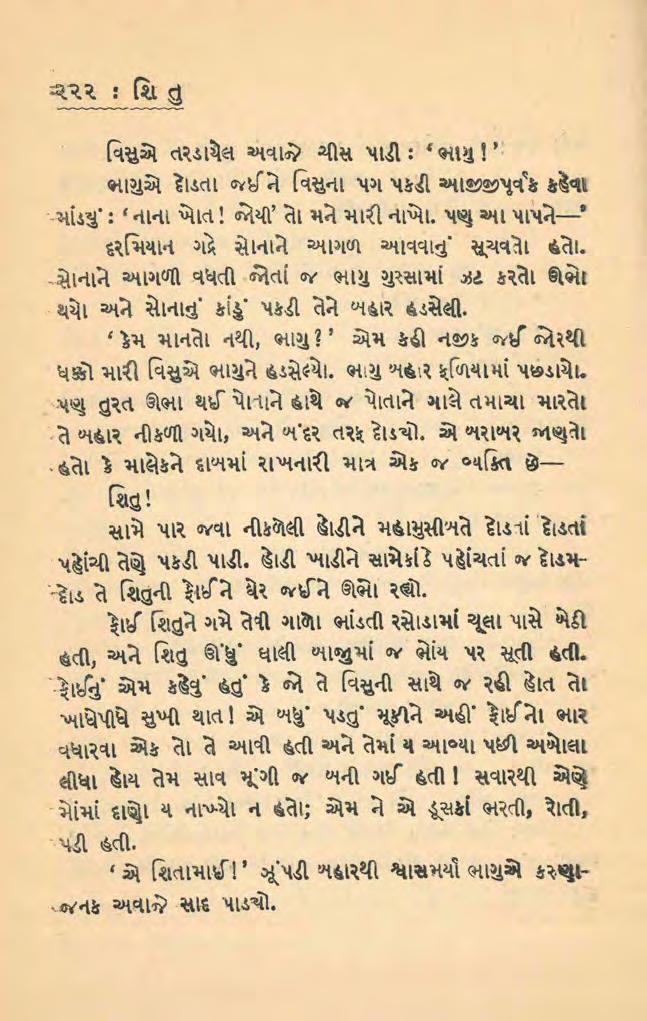 ૨૨૨ : શિ તુ
વિસુએ તરડાયેલ અવાજે ચીસ પાડી : ‘ભાગુ !’
ભાગુએ દોડતા જઈને વિસુના પગ પકડી આજીજીપૂર્વક કહેવા
માંડયું : ‘નાના ખોત ! જોયી’ તો મને મારી નાખો. પણ આ પાપને—’
દરમિયાન ગદ્રે સોનાને આગળ આવવાનું સૂચવતો હતો.
સોનાને આગળી વધતી જોતાં જ ભાગુ ગુસ્સામાં ઝટ કરતો ઊભો
થયો અને સોનાનું કાંડું પકડી તેને બહાર હડસેલી.
‘કેમ માનતો નથી, ભાગુ ?’ એમ કહી નજીક જઈ જોરથી
ધક્કો મારી વિસુએ ભાગુને હડસેલ્યો. ભાગુ બહાર ફળિયામાં પછડાયો.
પણ તુરત ઊભા થઈ પોતાને હાથે જ પોતાને ગાલે તમાચા મારતો
તે બહાર નીકળી ગયો, અને બંદર તરફ દોડયો. એ બરાબર જાણતો
હતો કે માલેકને દાબમાં રાખનારી માત્ર એક જ વ્યક્તિ છે—
શિતુ !
સામે પાર જવા નીકળેલી હોડીને મહામુસીબતે દોડતાં દોડતાં
પહોંચી તેણે પકડી પાડી. હોડી ખાડીને સામેકાંઠે પહોંચતાં જ દોડમ-
દોડ તે શિતુની ફોઈને ઘેર જઈને ઊભો રહ્યો.
ફોઈ શિતુને ગમે તેવી ગાળો ભાંડતી રસોડામાં ચૂલા પાસે બેઠી
હતી, અને શિતુ ઊંધું ઘાલી બાજુમાં જ ભોંય પર સૂતી હતી.
ફોઈનું એમ કહેવું હતું કે જો તે વિસુની સાથે જ રહી હોત તો
ખાધેપીધે સુખી થાત ! એ બધું પડતું મૂકીને અહીં ફોઈનો ભાર
વધારવા એક તો તે આવી હતી અને તેમાં ય આવ્યા પછી અબોલા
લીધા હોય તેમ સાવ મૂંગી જ બની ગઈ હતી ! સવારથી એણે
મોંમાં દાણો ય નાખ્યો ન હતો; એમ ને એ ડૂસકાં ભરતી, રોતી,
પડી હતી.
‘એ શિતામાઈ !’ ઝૂંપડી બહારથી શ્વાસભર્યા ભાગુએ કરુણા-
જનક અવાજે સાદ પાડયો.